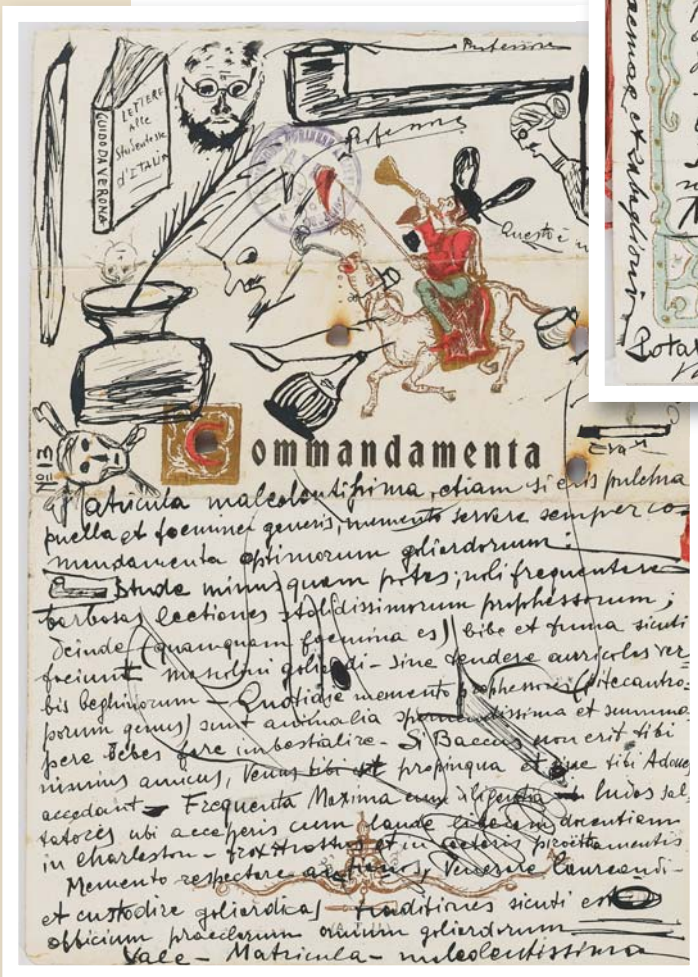 Professore
GUIDO DA VERONA
LETTERE
Alle
Studentesse
d'ITALIA
Professore
Questo è
Nº 13
Commandamenta
Matricula maleolentissima, etiam si eris pulchra
puella et foeminei generis, memento servare semper co-
mandamenta optimorum goliardorum:
Stude minus quam potes; noli frequentare
barbosas lectiones stolidissimorum prophessorum;
deinde (quamquam foemina es) bibe et fuma sicuti
faciunt masculini goliardi - sine tendere auriculas ver
bis beghinorum - Quotidie memento prophessores (pitecantro-
porum genus) sunt animalia et summo
pere debes imbestialire - Si Baccus non erit tibi
nimius amicus, Venus tibi propinqua et sine tibi Adones
accedant - Frequenta Maxima cum diligentia ludos sal
tatores ubi acceperis cum laude docentiam
in charleston - et in caeteris
Memento respectare anzianos, Venerare laureandi -
et custodire goliardicas traditiones sicuti est
officium praeclarum omnium goliardorum
Vale - Matricula - maleolentissima